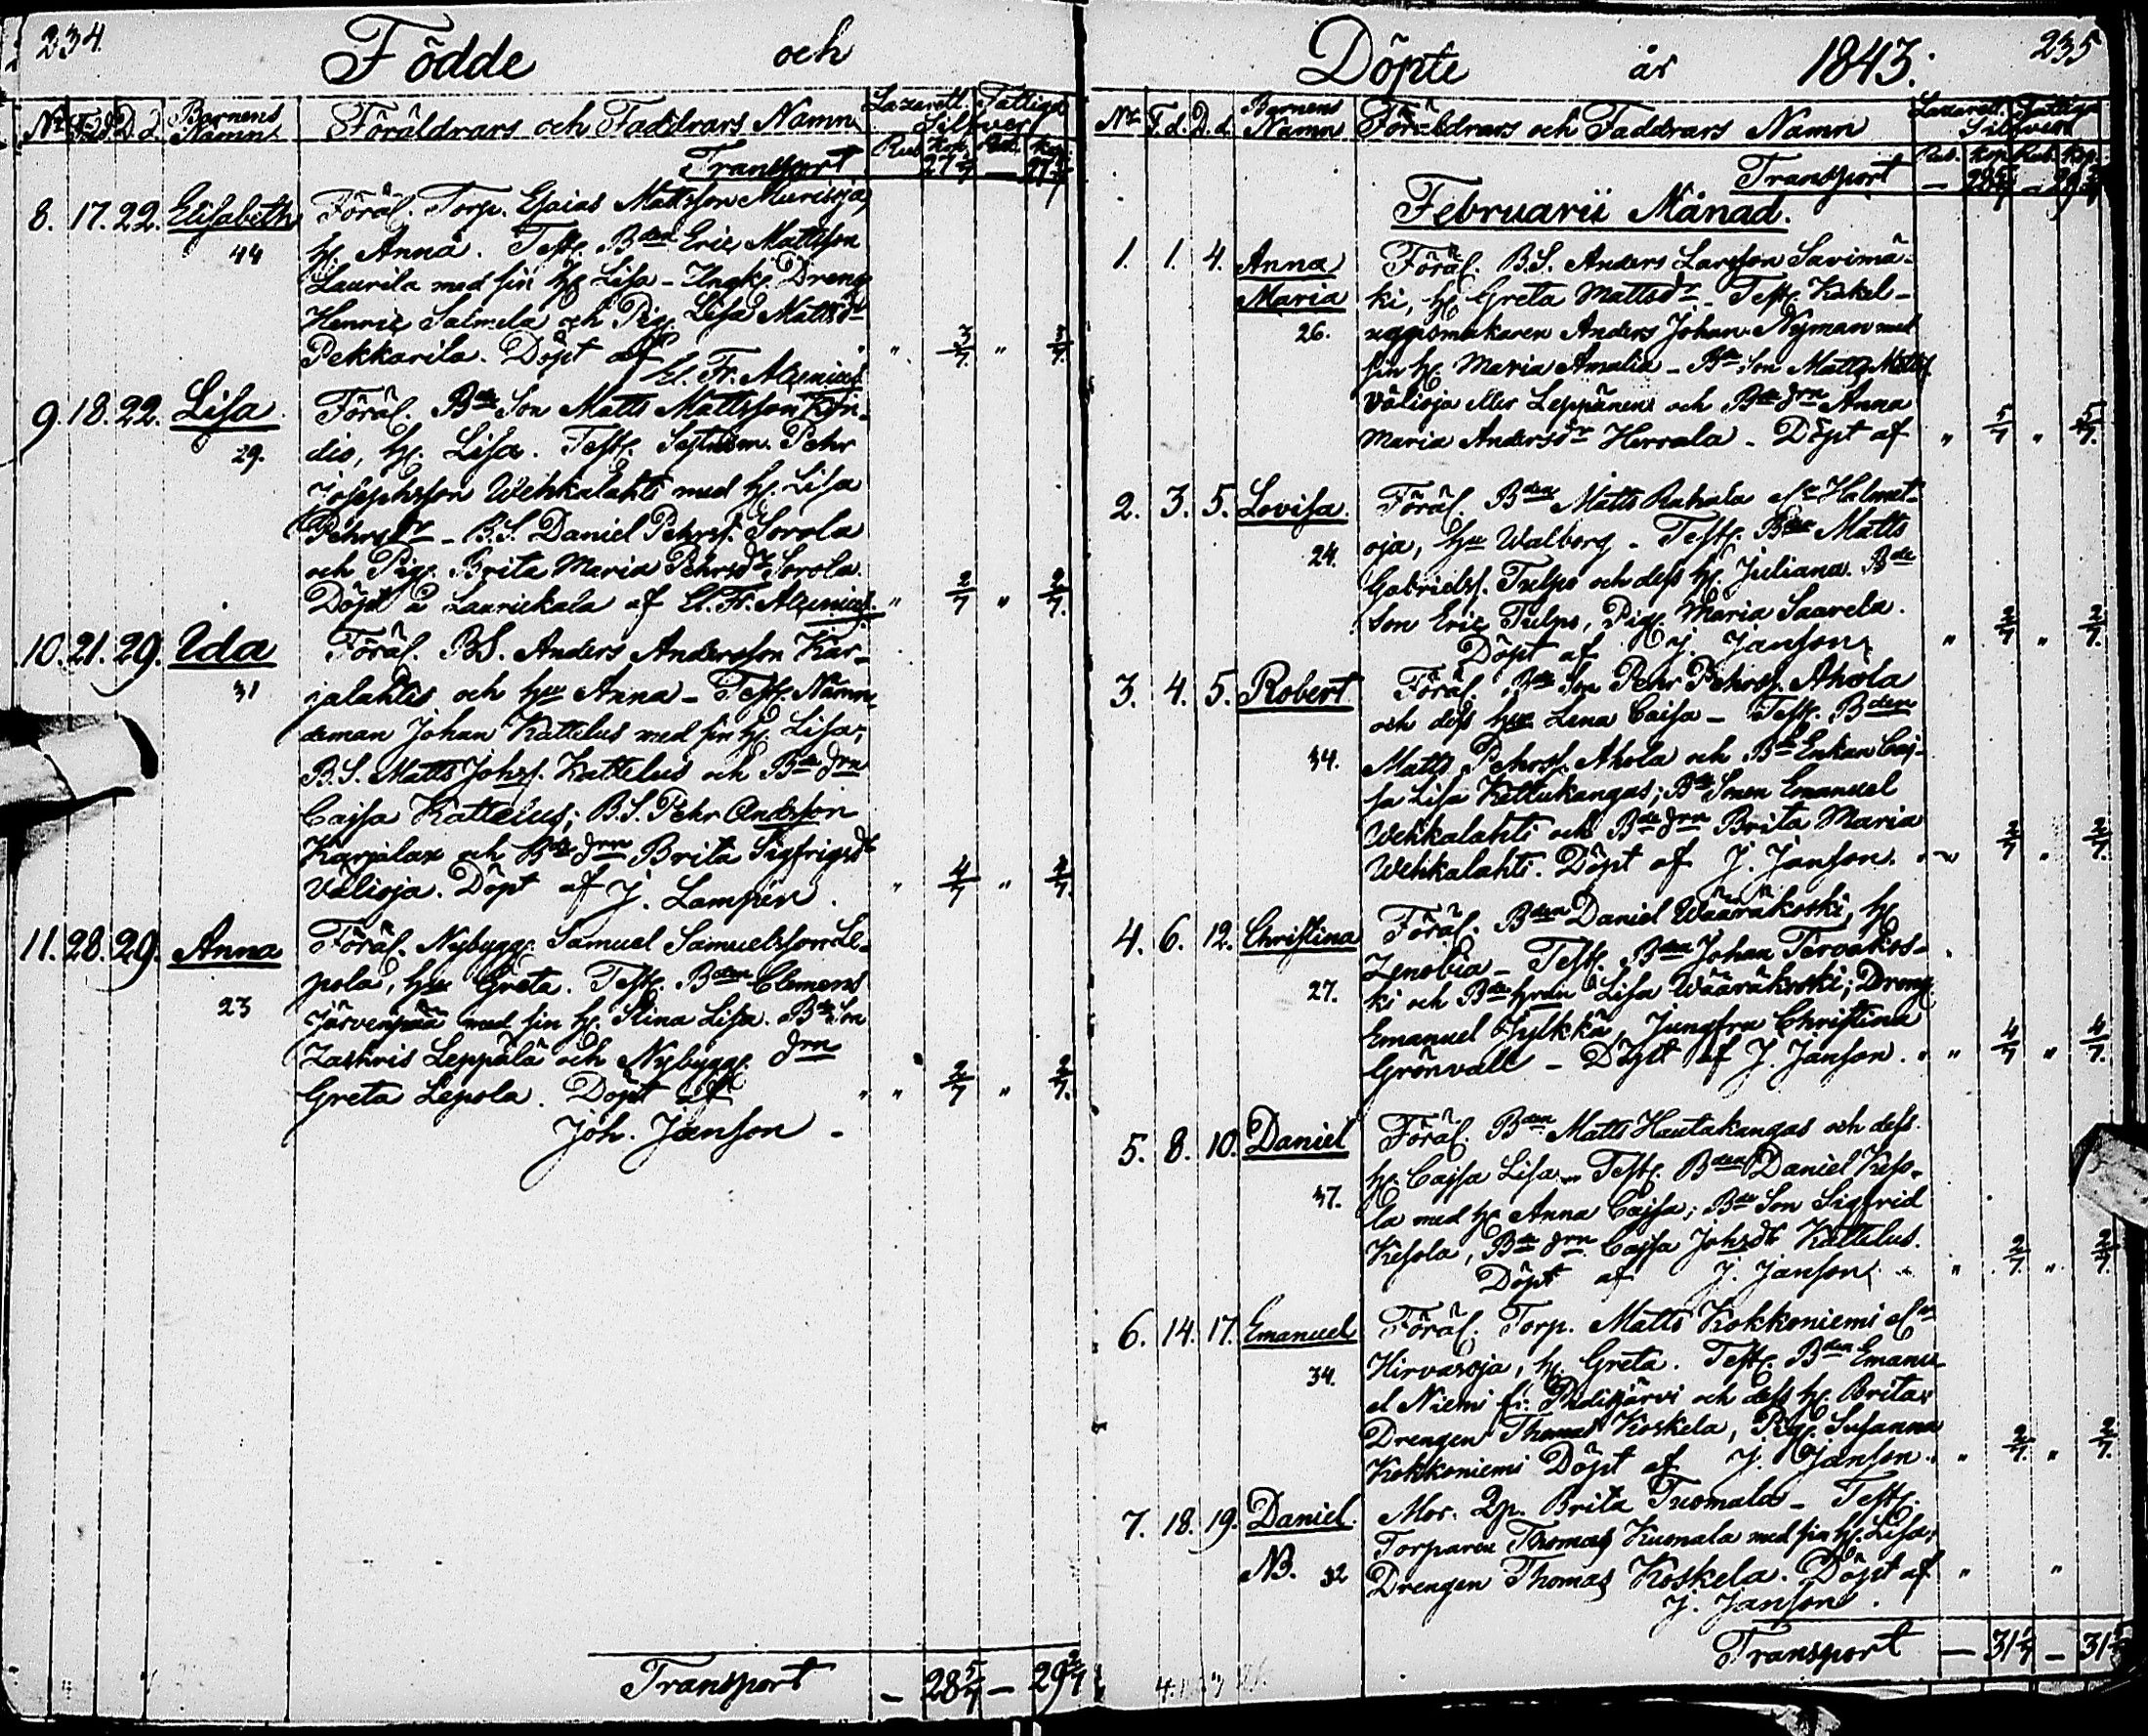 234.
Födde och
Nr F.d. D.d. Barnens Namn Föräldrars och Faddrars Namn Lazarett Fattiga Silfver
Rub. Kop. Rub. Kop.
Transport 27 27
8. 17. 22. Elisabeth Föräl. Torp. Esaias Mattsson Murisoja,
44 h. Anna. Test. Bden Eric Mattsson
Laurila med sin h. Lisa - Ungk. Dreng
Henric Salmela och Pig. Lisa Mattsdr
Pekkarila. Döpt af " 3/7 " 3/7.
El. Fr. Alcenius
9. 18. 22. Lisa. Föräl. Bde Son Matts Mattsson Kon-
29. dio, h. Lisa. Test. Sextism. Pehr
Josephsson Wehkalahti med h. Lisa
Pehrsdr - B.S. Daniel Pehrs. Sorola
och Pig. Brita Maria Pehrsdr Sorola.
Döpt å Lauriekala af El. Fr. Alcenius. " 2/7 " 2/7.
10. 21. 29. Ida Föräl. BS. Anders Andersson Kar-
31 jalahtis och hu Anna - Test. Nämn-
deman Johan Kattelus med sin h. Lisa;
B.S. Matts Johs. Kattelus och Bde drn
Cajsa Kattelus; B.S. Pehr Andersson
Karjalax och Bde drn Brita Sigfrigsdr
Välioja. Döpt af J. Lampén. " 4/7 " 4/7.
11. 28. 29. Anna Föräl. Nybygg. Samuel Samuelsson Le-
23 pola, hu Greta. Test. Bden Clemens
Järvenpää med sin h. Stina Lisa. Bde Son
Zachris Leppälä och Nybygg. drn
Greta Lepola. Döpt af " 2/7 " 2/7.
Joh. Janson -
Transport - 28 5/7 - 29 2/7
Döpte år 1843. 235
Nr F.d. D.d. Barnens Namn Föräldrars och Faddrars Namn Lazarett Fattiga Silfver
Rub. Kop. Rub. Kop.
Transport - 28 5/7 - 29 2/7
Februarii Månad.
1. 1. 4. Anna Föräl. B.S. Anders Larsson Savimä-
Maria ki, h. Greta Mattsdr - Test. Kakel-
26. ugnsmakaren Anders Johan Nyman med
sin h. Maria Amalia - Bde Son Matts Matts.
Välioja eller Leppänen och Bde drn Anna
Maria Andersdr Herrala - Döpt af " 5/7 " 5/7.
2. 3. 5. Lovisa. Föräl. Bden Matts Rahala el. Halmet-
24. oja, hu Walborg - Test. Bden Matts
Gabriels. Tulpo och dess h. Juliana. Bde
Son Eric Tulpo, Pig. Maria Saarela.
Döpt af J. Janson. " 2/7 " 2/7.
3. 4. 5. Robert Föräl. Bde Son Pehr Pehrs. Ahola
och dess hu Lena Caisa - Test. Bden
34. Matts Pehrs. Ahola och Bde Enkan Caj-
sa Lisa Kettukangas; Bde Sonen Emanuel
Wehkalahti och Bde drn Brita Maria
Wehkalahti. Döpt af J. Janson. " 2/7 " 2/7.
4. 6. 12. Christina Föräl. Bden Daniel Wääräkoski, h.
Zenobia - Test. Bden Johan Tervakos-
27. ki och Bde hrdn Lisa Wääräkoski; Dreng
Emanuel Jylkkä, Jungfru Christina
Grönvall - Döpt af J. Janson. " 4/7 " 4/7.
5. 8. 10. Daniel Föräl. Bden Matts Hautakangas och dess
h. Cajsa Lisa - Test. Bden Daniel Keso-
37. la med h. Anna Cajsa; Bde Son Sigfrid
Kesola, Bde drn Cajsa Johsdr Kattelus.
Döpt af J. Janson. " 2/7. " 2/7.
6. 14. 17. Emanuel Föräl. Torp. Matts Kokkoniemi el.
34. Hirvasoja, h. Greta. Test. Bden Emanu-
el Niemi fr. och dess h. Brita;
Drengen Thomas Koskela, Pig. Susanna
Kokkoniemi Döpt af J. Janson. " 2/7. " 2/7.
7. 18. 19. Daniel. Mor. Qp. Brita Tuomala - Test.
Torparen Thomas Kuonala med sin h. Lisa;
NB. 32 Drengen Thomas Koskela. Döpt af " "
J. Janson.
Transport - 31 - 31